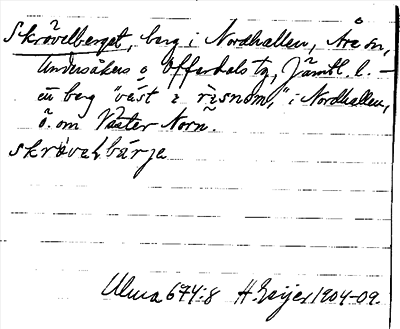 Skrövelberget, berg i Nordhallen, Åre sn,
Undersåkers o Offerdals tg, Jämtl. l. –
en berg "väst i risnom," i Nordhallen,
ö. om Väster Norn.
skrövelbärje
Ulma 674:8 H. Geijer 1904-09.